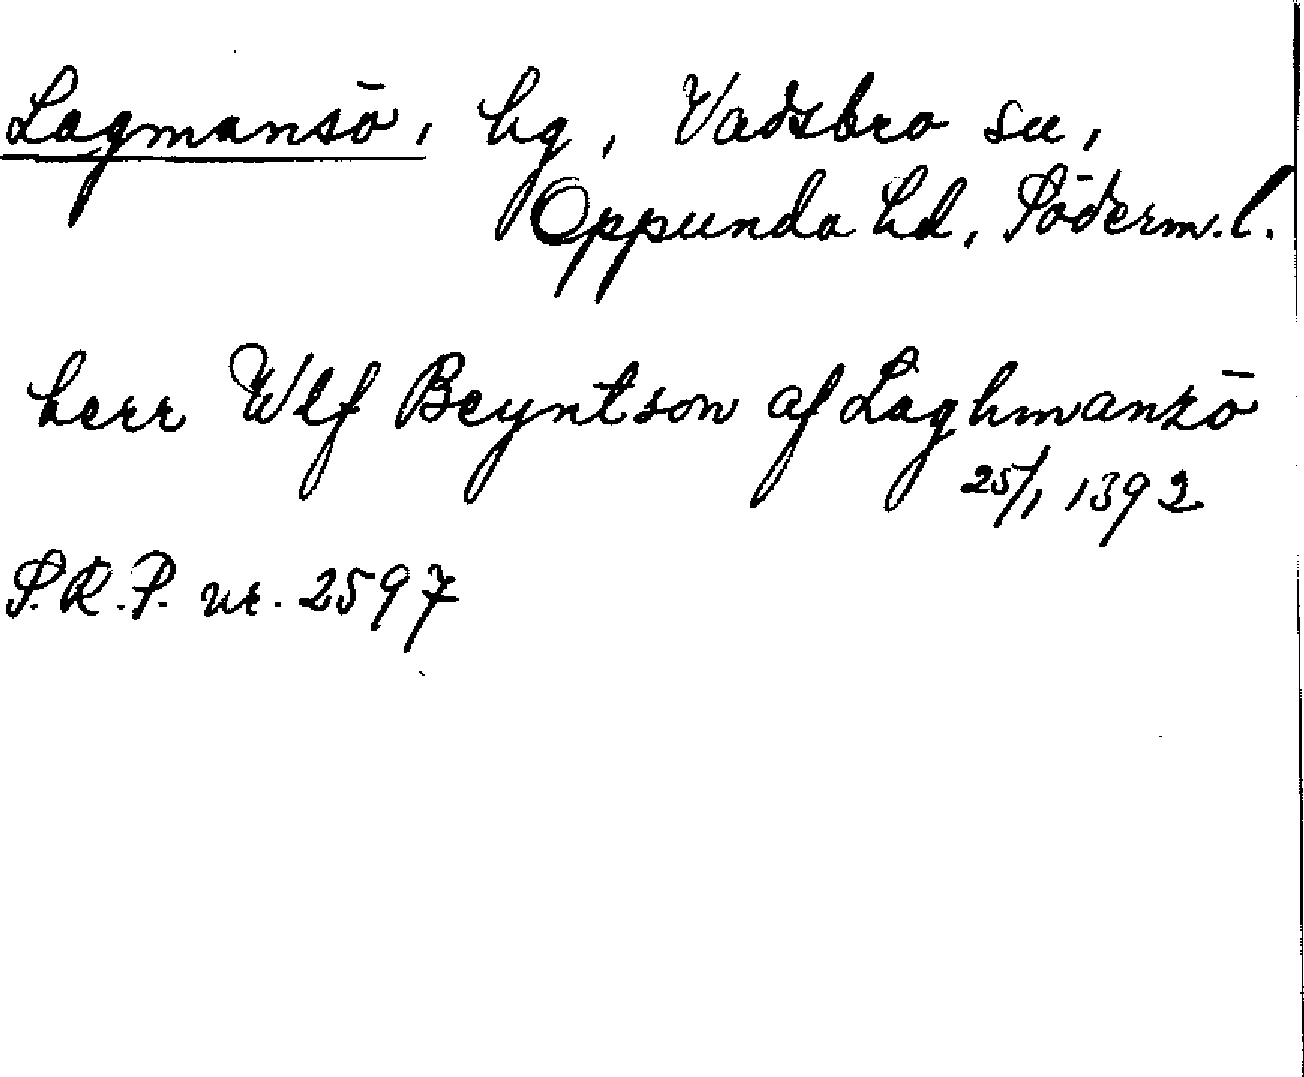 Lagmansö, hg, Vadsbro sn,
Oppunda hd, Söderm.l.
herr Wlf Beyntson af Laghmanzö
25/1 1392
S.R.P. nr. 2597